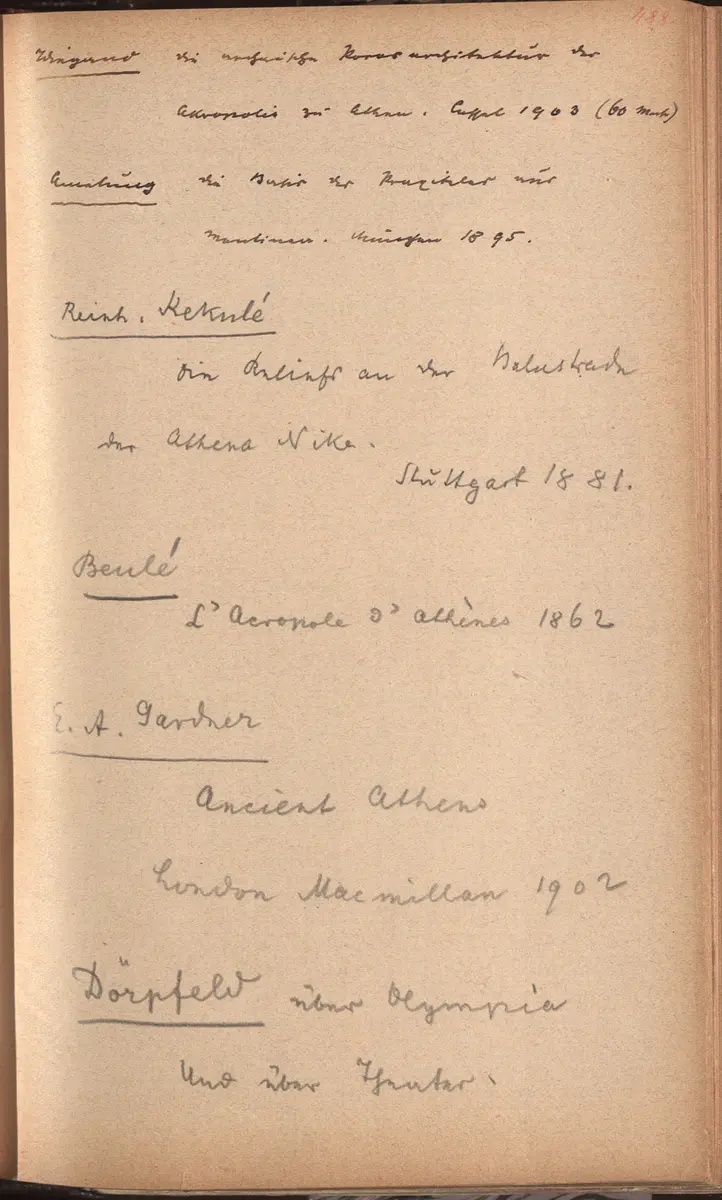 488
Wiegand die archaische Porosarchitektur der
Akropolis zu Athen. Cassel 1903 (60 Mark)
Amelung die Basis des Praxiteles aus
Mantinea. München 1895.
Reinh. Kekulé
die Reliefs an der Balustrade
der Athena Nike.
Stuttgart 1881.
Beulé
L'Acropole d'Athènes 1862
E. A. Gardner
Ancient Athens
London Macmillan 1902
Dörpfeld über Olympia
und über Theater.